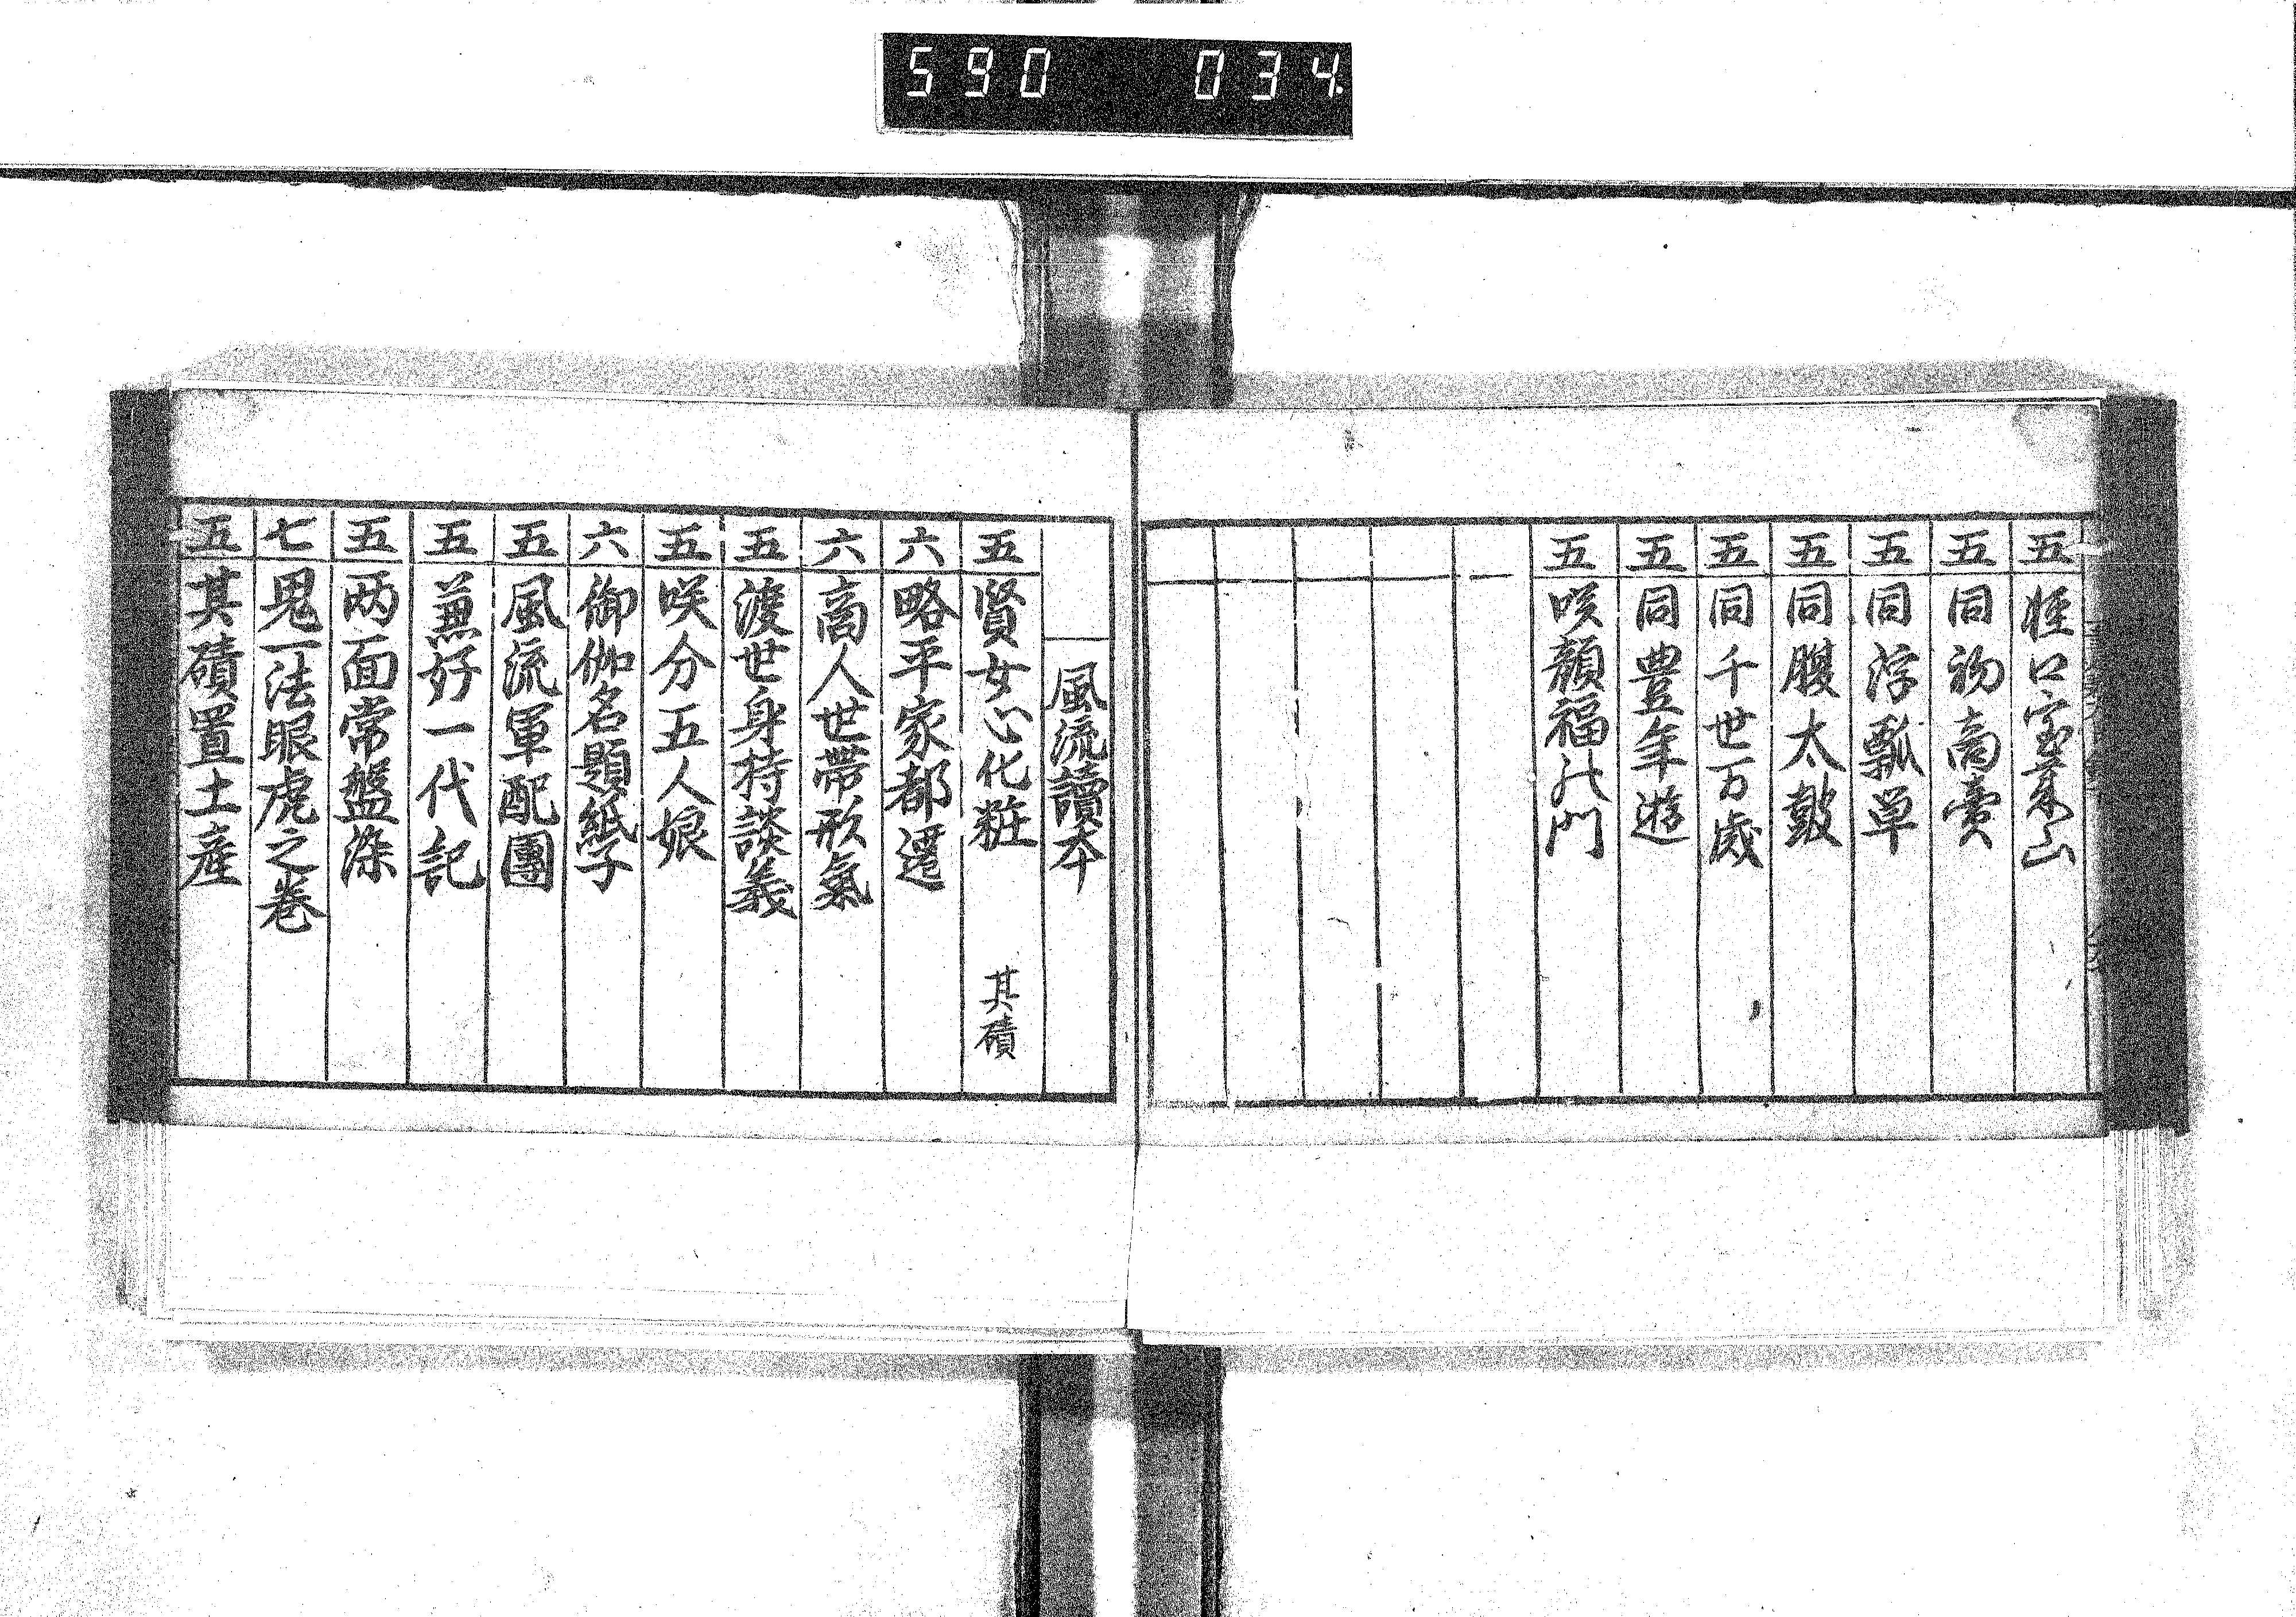 590 034
五 軽口宝莱山
五 同初商賣
五 同浮瓢単
五 同腹太皷
五 同千世万歳
五 同豊年遊
五 咲顔福の門
風流讀本
五 賢女心化粧 其磧
六 略平家都遷
六 商人世帯形氣
五 渡世身持談義
五 咲分五人娘
六 御伽名題紙子
五 風流軍配團
五 兼好一代記
五 两面常盤染
七 鬼一法眼虎之巻
五 其磧置土産